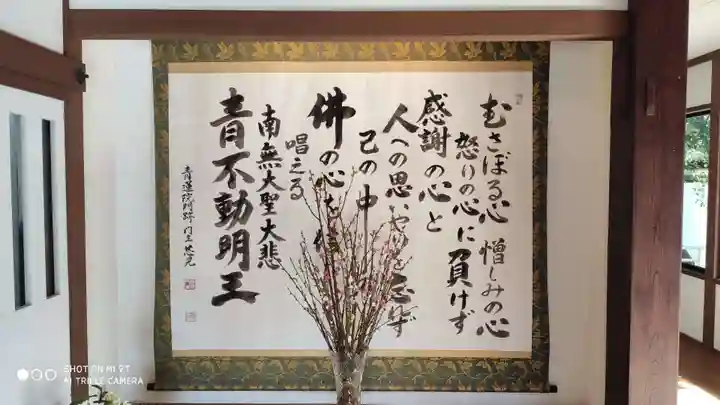 むさぼる心 憎しみの心
怒りの心に負けず
感謝の心と
人への思いやりを忘れず
己の中
佛の心を
唱える
南無大聖大悲
青不動明王
青蓮院門跡門主
SHOT ON MI 9T
AI TRIPLE CAMERA